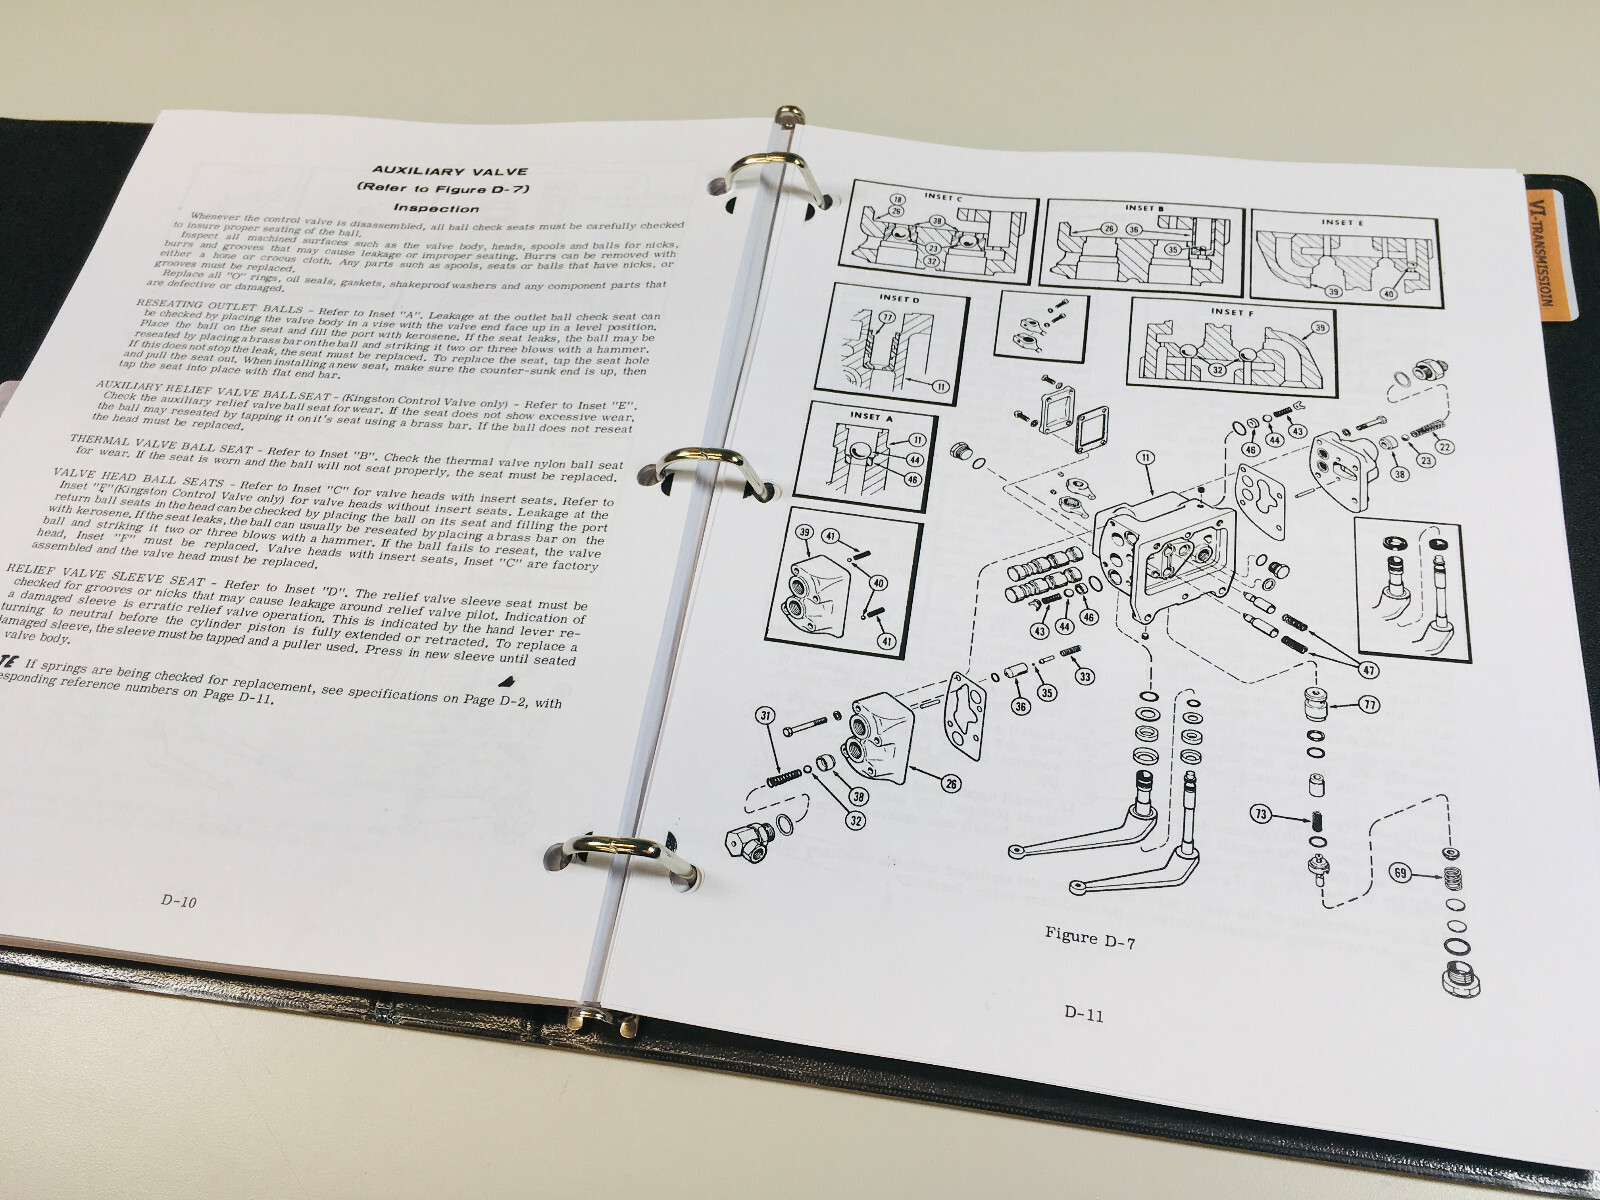 AUXILIARY VALVE
(Refer to Figure D-7)
Inspection
Whenever the control valve is disassembled, all ball check seats must be carefully checked
to insure proper seating of the ball.
Inspect all machined surfaces such as the valve body, heads, spools and balls for nicks,
burrs and grooves that may cause leakage or improper seating. Burrs can be removed with
either a hone or crocus cloth. Any parts such as spools, seats or balls that have nicks, or
grooves must be replaced.
Replace all "O" rings, oil seals, gaskets, shakeproof washers and any component parts that
are defective or damaged.
RESEATING OUTLET BALLS - Refer to Inset "A". Leakage at the outlet ball check seat can
be checked by placing the valve body in a vise with the valve end face up in a level position.
Place the ball on the seat and fill the port with kerosene. If the seat leaks, the ball may be
reseated by placing a brass bar on the ball and striking it two or three blows with a hammer.
If this does not stop the leak, the seat must be replaced. To replace the seat, tap the seat hole
and pull the seat out. When installing a new seat, make sure the counter-sunk end is up, then
tap the seat into place with flat end bar.
AUXILIARY RELIEF VALVE BALL SEAT - (Kingston Control Valve only) - Refer to Inset "E".
Check the auxiliary relief valve ball seat for wear. If the seat does not show excessive wear,
the ball may reseated by tapping it on it's seat using a brass bar. If the ball does not reseat
the head must be replaced.
THERMAL VALVE BALL SEAT - Refer to Inset "B". Check the thermal valve nylon ball seat
for wear. If the seat is worn and the ball will not seat properly, the seat must be replaced.
VALVE HEAD BALL SEATS - Refer to Inset "C" for valve heads with insert seats. Refer to
Inset "F" (Kingston Control Valve only) for valve heads without insert seats. Leakage at the
return ball seats in the head can be checked by placing the ball on its seat and filling the port
with kerosene. If the seat leaks, the ball can usually be reseated by placing a brass bar on the
ball and striking it two or three blows with a hammer. If the ball fails to reseat, the valve
head, Inset "F" must be replaced. Valve heads with insert seats, Inset "C" are factory
assembled and the valve head must be replaced.
RELIEF VALVE SLEEVE SEAT - Refer to Inset "D". The relief valve sleeve seat must be
checked for grooves or nicks that may cause leakage around relief valve pilot. Indication of
a damaged sleeve is erratic relief valve operation. This is indicated by the hand lever re-
turning to neutral before the cylinder piston is fully extended or retracted. To replace a
damaged sleeve, the sleeve must be tapped and a puller used. Press in new sleeve until seated
valve body.
TE If springs are being checked for replacement, see specifications on Page D-2, with
esponding reference numbers on Page D-11.
D-10
INSET C
18
26
38
23
32
INSET B
26
36
35
INSET E
39
40
INSET D
77
11
INSET F
39
32
INSET A
11
44
46
39
41
40
41
11
46
44
43
38
23
22
43
44
46
47
36
35
33
31
38
32
26
77
73
69
Figure D-7
D-11
VI-TRANSMISSIOIN